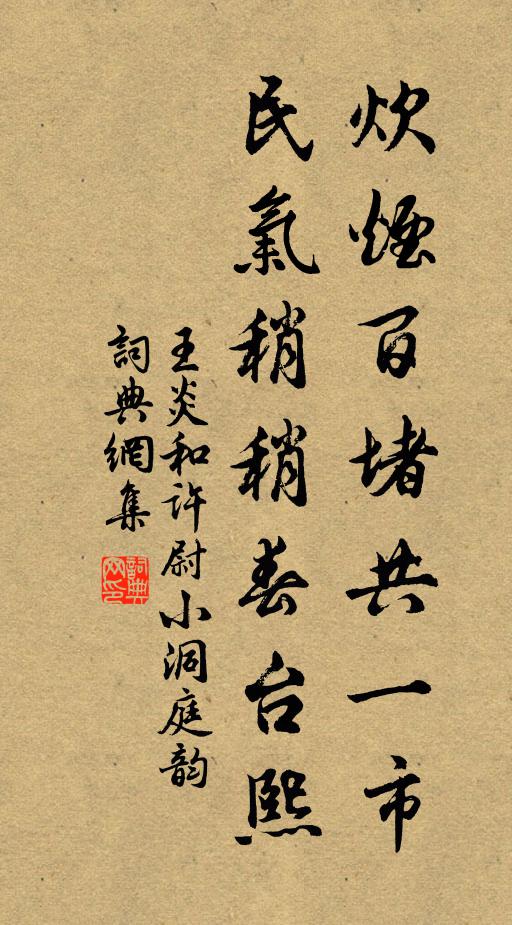 炊煙百堵共一市
民氣稍稍春台熙
王炎和許尉小洞庭韵
詞典網集
詞典网印